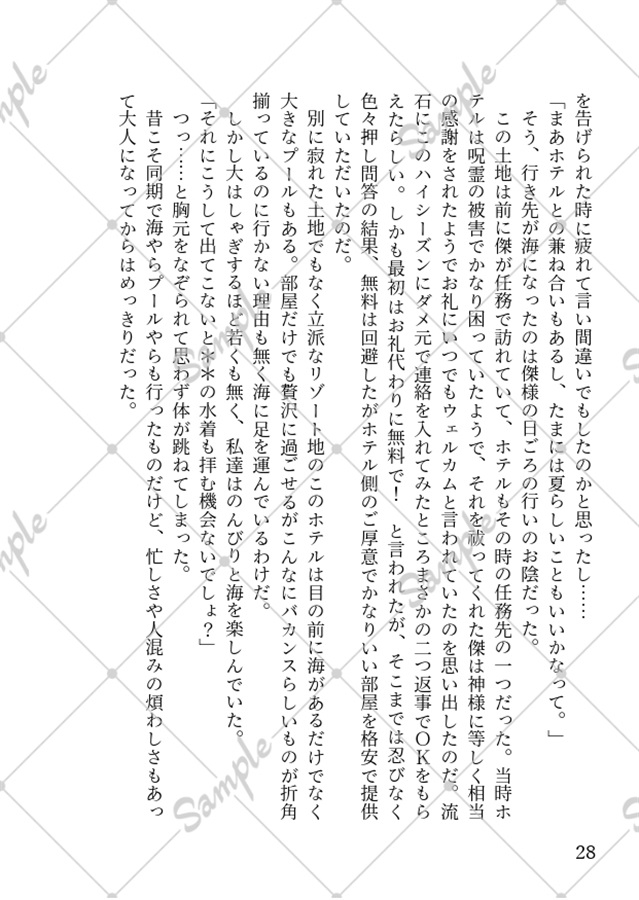 を告げられた時に疲れて言い間違いでもしたのかと思ったし……
「まあホテルとの兼ね合いもあるし、たまには夏らしいこともいいかなって。」
そう、行き先が海になったのは傑様の日ごろの行いのお陰だった。
この土地は前に傑が任務で訪れていて、ホテルもその時の任務先の一つだった。当時ホ
テルは呪霊の被害でかなり困っていたようで、それを祓ってくれた傑は神様に等しく相当
の感謝をされたようでお礼にいつでもウェルカムと言われていたのを思い出したのだ。流
石にこのハイシーズンにダメ元で連絡を入れてみたところまさかの二つ返事でOKをもら
えたらしい。しかも最初はお礼代わりに無料で！　と言われたが、そこまでは忍びなく
色々押し問答の結果、無料は回避したがホテル側のご厚意でかなりいい部屋を格安で提供
していただいたのだ。
別に寂れた土地でもなく立派なリゾート地のこのホテルは目の前に海があるだけでなく
大きなプールもある。部屋だけでも贅沢に過ごせるがこんなにバカンスらしいものが折角
揃っているのに行かない理由も無く海に足を運んでいるわけだ。
しかし大はしゃぎするほど若くも無く、私達はのんびりと海を楽しんでいた。
「それにこうして出てこないと＊＊の水着も拝む機会ないでしょ？」
つっ……と胸元をなぞられて思わず体が跳ねてしまった。
昔こそ同期で海やらプールやらも行ったものだけど、忙しさや人混みの煩わしさもあっ
て大人になってからはめっきりだった。
28
Sample
Sample
Sample
Sample
Sample
Sample